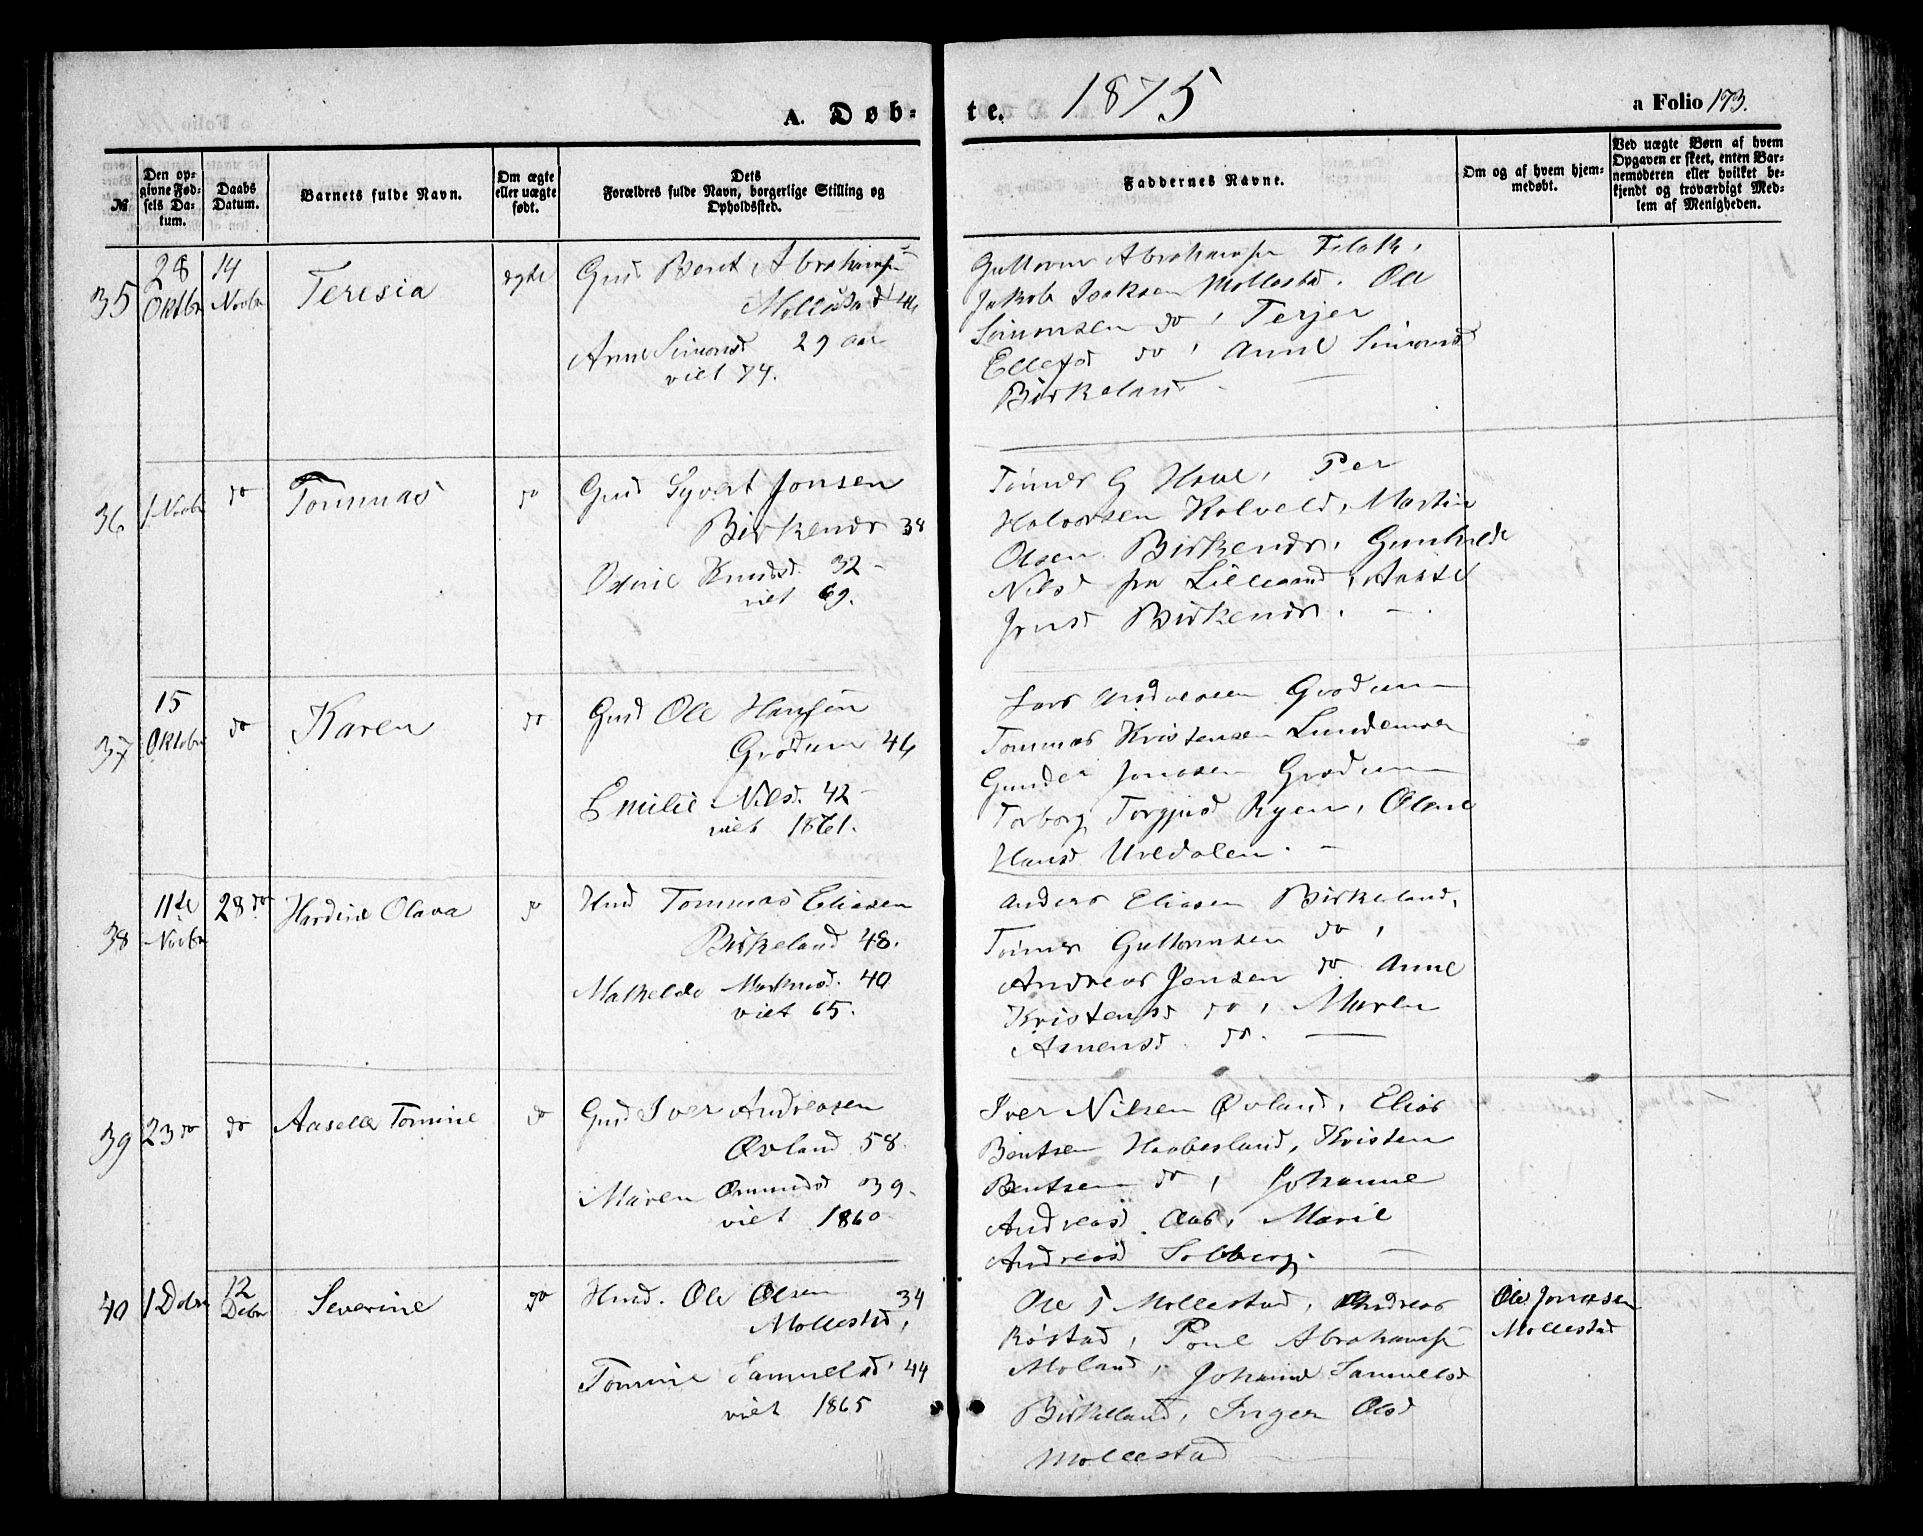 A. Døb- te. 1875
a Folio 173.
№
Den op-
givne Fød-
sels Da-
tum.
Daabs
Datum.
Barnets fulde Navn.
Om ægte
eller uægte
født.
Dets
Forældres fulde Navn, borgerlige Stilling og
Opholdssted.
Faddernes Navne.
Om og af hvem hjem-
medøbt.
Ved uægte Børn af hvem
Opgaven er skeet, enten Bar-
nemoderen eller hvilket be-
kjendt og troværdigt Med-
lem af Menigheden.
35
28
Oktbr
14
Novbr
Teresia
ægte
Gmd Beret Abrahams
Mollestad
Anne Simonsd 29 aar
viet 74.
Guttorm Abrahams
Jakob Isaksen Mollestad. Ole
Simonsen do, Terjer
Ellefsd do, Anne Simonsd
Birkeland -
36
1 Novbr
do
Tommas
do
Gmd Syvert Jonsen
Birkenes 38
Knudsd. 32 -
viet 69.
Tømes G Per
Halvorsen Kolveld, Martin
Olsen Birkenes, Gunhilde
Nilsd fra Lillesand, Aaste
Jensd Birkenes. -
37
15
Oktobr
do
Karen
do
Gmd Ole Hansen
Grødum 46
Emilie Nilsd. 42 -
viet 1861.
Lars Andersen Grødum
Tommas Kristensen Lundemoen
Gunder Jonasen Grødum
Torborg Torgjusd Ryen, Olene
Hansd Uveldalen. -
38
11te
Novbr
28 do
Hardine Olava
do
Hmd Tommas Eliasen
Birkeland 48.
Mathilde 40
viet 65.
Anders Eliasen Birkeland,
Tømes Guttormsen do,
Andreas Jensen do Anne
Kristensd do, Maren
do. -
39
23 do
do
Aaselle Tomine
do
Gmd Iver Andreasen
Øvland 58.
Maren Omundsd 39.
viet 1860
Iver Nilsen Øvland, Elias
Bentsen Haabesland, Kristen
Bentsen do, Johanne
Andreasd Aas, Marie
Andreasd Solberg. -
40
1 Debr
12
Debr
Severine
do
Hmd. Ole Olsen 34
Mollestad,
Tomine Samuelsd 44
viet 1865
Ole J Mollestad, Andreas
Røstad, Poul Abrahams
Moland, Johanne Samuelsd
Birkeland, Inger Olsd
Mollestad
Ole Jonasen
Mollestad